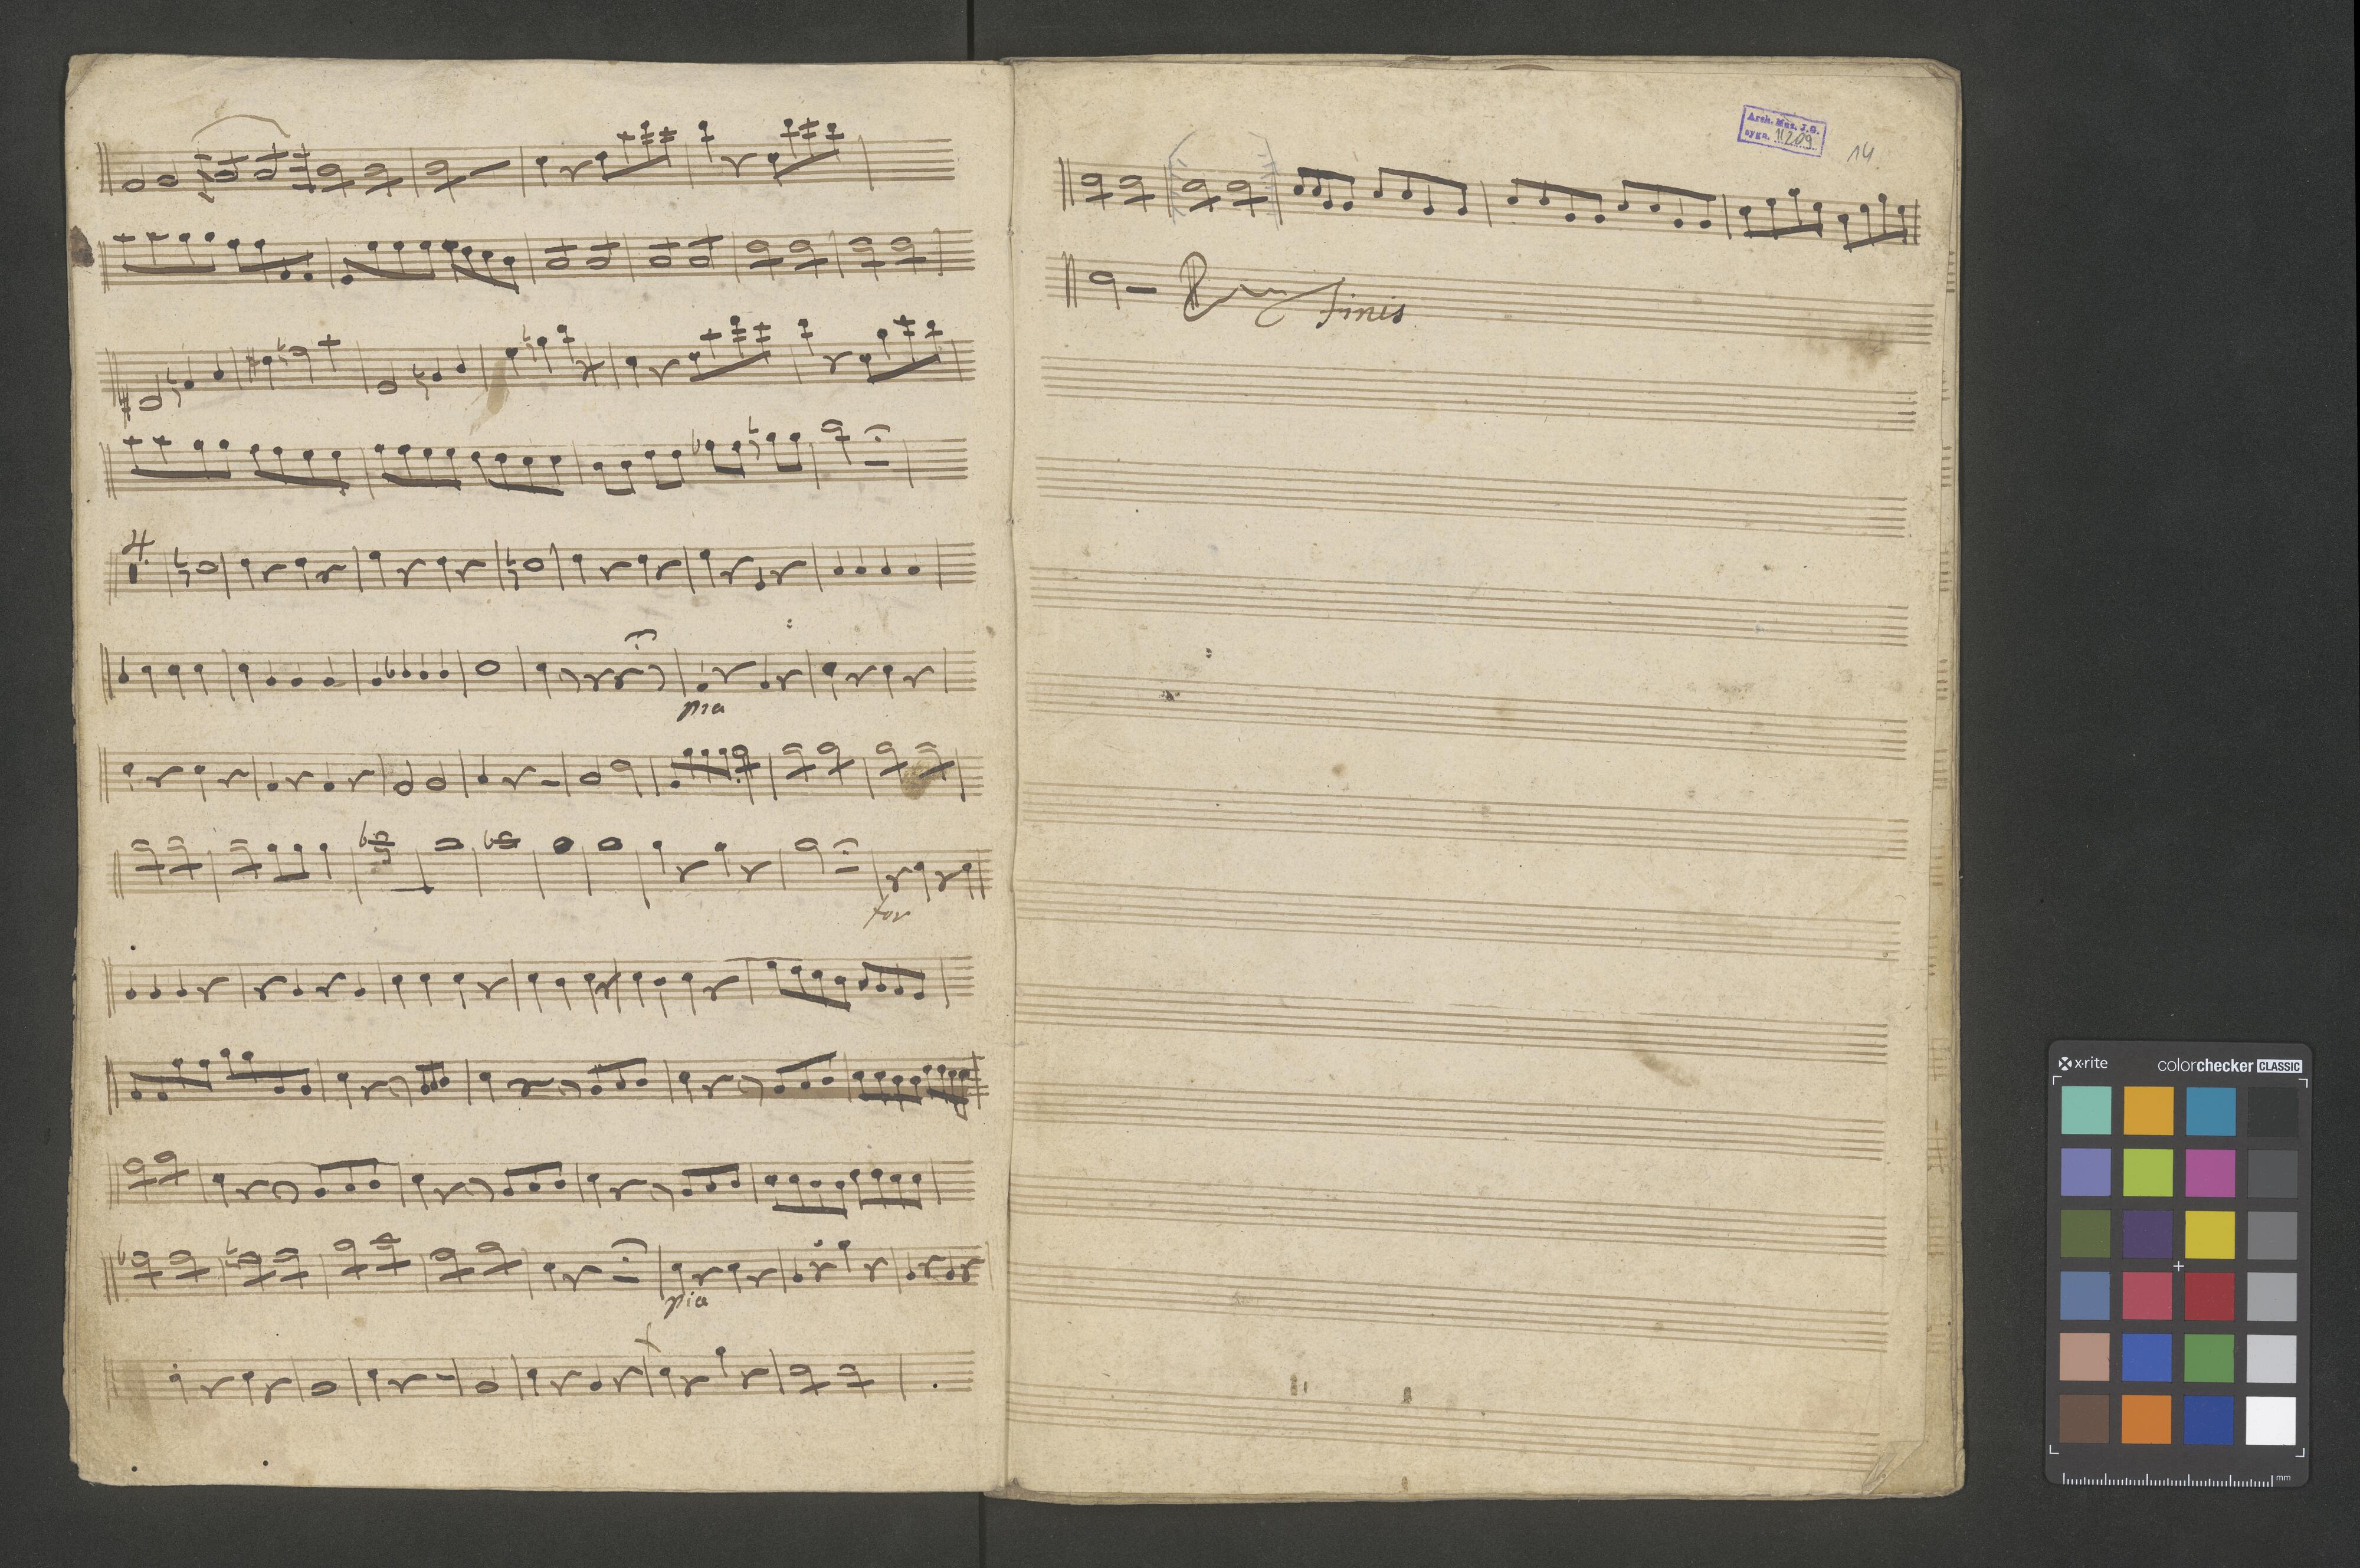 4.
pia
for
pia
Arch. Mus. J.G.
sygn. II 209
14
Finis
x·rite
colorchecker CLASSIC
mm